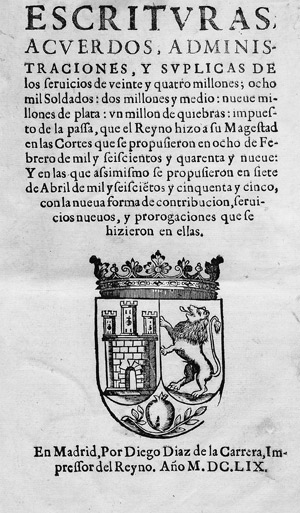 ESCRITVRAS,
ACVERDOS, ADMINIS-
TRACIONES, Y SVPLICAS DE
los ſeruicios de veinte y quatro millones; ocho
mil Soldados: dos millones y medio: nueue mi-
llones de plata: vn millon de quiebras: impueſ-
to de la paſſa, que el Reyno hizo a ſu Mageſtad
en las Cortes que ſe propuſieron en ocho de Fe-
brero de mil y ſeiſcientos y quarenta y nueue:
Y en las que aſsimiſmo ſe propuſieron en ſiete
de Abril de mil y ſeiſciẽtos y cinquenta y cinco,
con la nueua forma de contribucion, ſerui-
cios nueuos, y prorogaciones que ſe
hizieron en ellas.
En Madrid, Por Diego Diaz de la Carrera, Im-
preſſor del Reyno. Año M.DC.LIX.